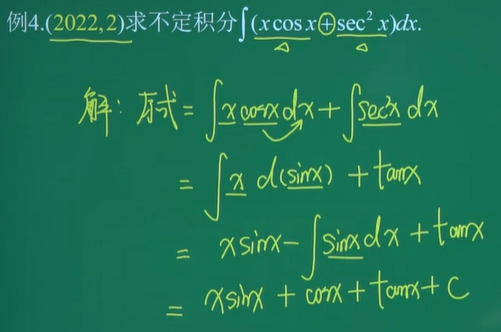 例4.(2022,2)求不定积分∫(x cos x+sec² x)dx.
解: 原式=∫x cosx dx+∫sec²x dx
=∫x d(sinx) + tanx
= xsinx-∫sinx dx+tanx
= xsinx + cosx+tanx+C